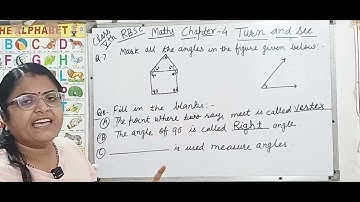 THE ALPHABET
Class Vth RBSC Maths Chapter-4 Turn and see
Q-7 Mark all the angles in the figure given below:-
90 90
Q8- Fill in the blanks:-
(A) The point where two rays meet is called vertex
(B) The angle of 90 is called Right angle.
(C) ________ is used measure angles.